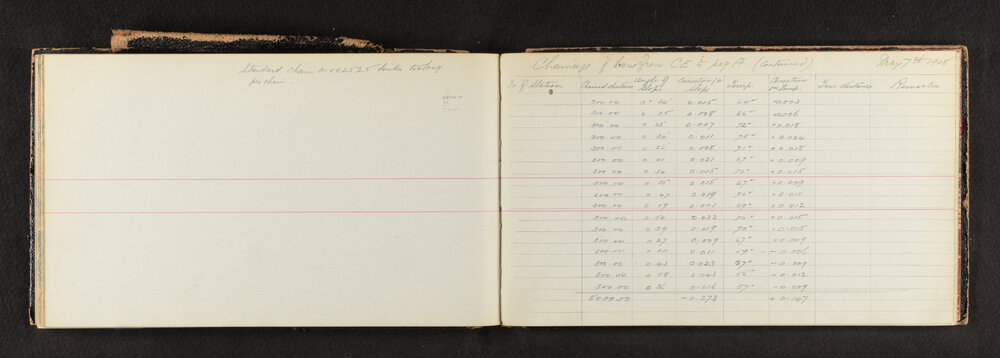 Standard Chain 0.002525 links too long
per chain.
Chaining of base from C.E. to peg A (continued) May 7th 1908
No of Station Chained distance Angle of Slope Correction for Slope Temp. Correction for Temp. True distance Remarks
300.00 0° 34' 0.015 64° +0.003
300.00 0 25 0.008 66° +0.006
300.00 0 25 0.007 72° +0.018
300.00 0 30 0.011 75° +0.024
300.00 0 26 0.008 71° +0.018
300.00 0 41 0.021 67° +0.009
300.00 0 34 0.015 70° +0.015
300.00 0 35 0.015 67° +0.009
200.00 0 47 0.019 70° +0.010
300.00 0 09 0.001 69° +0.012
300.00 0 50 0.032 70° +0.015
300.00 0 39 0.019 70° +0.015
300.00 0 27 0.009 67° +0.009
300.00 0 30 0.011 59° -0.006
300.00 0 42 0.023 57° -0.009
300.00 0 58 0.043 56° -0.012
300.00 0 36 0.016 57° -0.009
5000.00 -0.273 +0.147